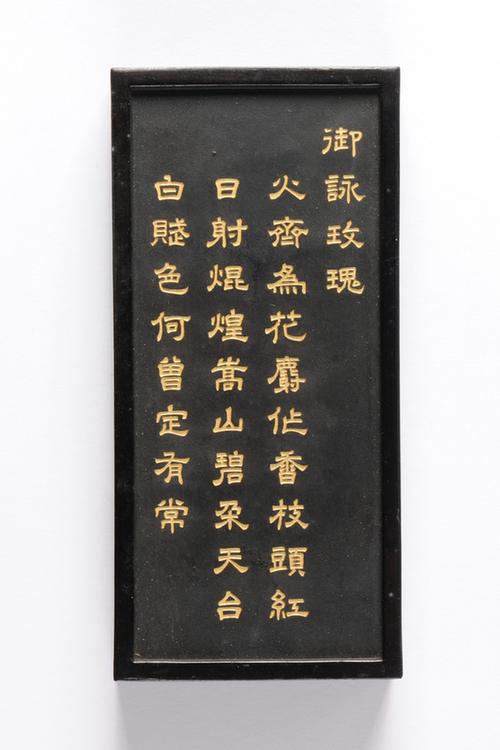 御詠玫瑰
火齊為花麝作香枝頭紅
日射焜煌嵩山碧朶天台
白賦色何曽定有常